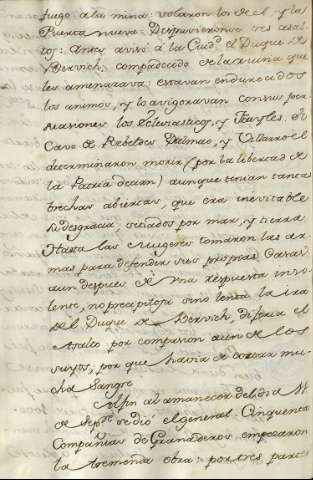 fuego à la mina: volaron los de el y la
Puerta nueva: Dispusieronse tres asal-
tos: Antes avisó á la Ciud.d el Duque de
Bervich, compadecido de la ruina que
les amenazava: estavan endurecidos
los animos, y lo avigoravan con sus per-
suasiones los Eclesiasticos, y Frayles. El
Cavo de Rebeldes Dalmao, y Villarroel
determinaron morir (por la libertad de
la Patria decian) aunque tenian tanta
brechas abiertas, que era inevitable
su desgracia, sitiados por mar, y tierra.
Hasta las mugeres tomaron las ar-
mas para defender sus propias Casas;
aun despues de una respuesta inso-
lente, no precipitosa sino lenta la ira
del Duque de Bervich, diferia el
asalto por compasion aun de los
suyos, por que havia de costar mu-
cha Sangre
Al fin al amanecer del dia 11
de Sept.e se dió el general. Cinquenta
Compañias de Granaderos empezaron
la tremenda obra: por tres partes